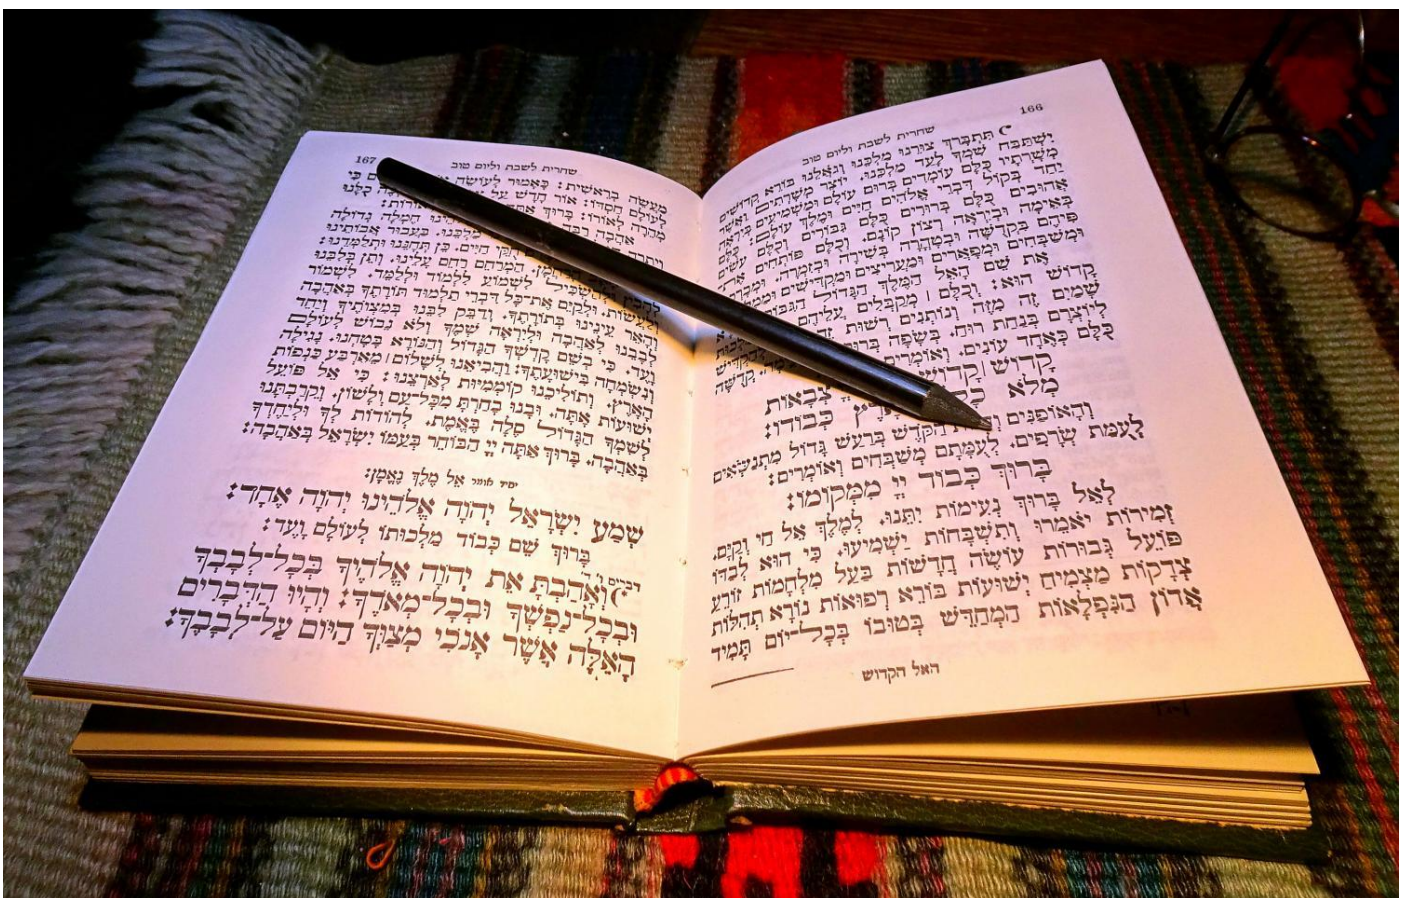 166
שחרית לשבת וליום טוב
תִּתְבָּרַךְ צוּרֵנוּ מַלְכֵּנוּ וְגֹאֲלֵנוּ בּוֹרֵא קְדוֹשִׁים
יִשְׁתַּבַּח שִׁמְךָ לָעַד מַלְכֵּנוּ. יוֹצֵר מְשָׁרְתִים וַאֲשֶׁר
מְשָׁרְתָיו כֻּלָּם עוֹמְדִים בְּרוּם עוֹלָם וּמַשְׁמִיעִים בְּיִרְאָה
יַחַד בְּקוֹל דִּבְרֵי אֱלֹהִים חַיִּים וּמֶלֶךְ עוֹלָם: כֻּלָּם
אֲהוּבִים כֻּלָּם בְּרוּרִים כֻּלָּם גִּבּוֹרִים וְכֻלָּם עוֹשִׂים
בְּאֵימָה וּבְיִרְאָה רְצוֹן קוֹנָם. וְכֻלָּם פּוֹתְחִים
פִּיהֶם בִּקְדֻשָּׁה וּבְטָהֳרָה בְּשִׁירָה וּבְזִמְרָה
וּמְשַׁבְּחִים וּמְפָאֲרִים וּמַעֲרִיצִים וּמַקְדִּישִׁים
אֶת שֵׁם הָאֵל הַמֶּלֶךְ הַגָּדוֹל
קָדוֹשׁ הוּא: וְכֻלָּם | מְקַבְּלִים עֲלֵיהֶם
שָׁמַיִם זֶה מִזֶּה וְנוֹתְנִים רְשׁוּת
לְיוֹצְרָם בְּנַחַת רוּחַ. בְּשָׂפָה בְרוּרָה קְדֻשָּׁה
כֻּלָּם כְּאֶחָד עוֹנִים. וְאוֹמְרִים
קָדוֹשׁ | קָדוֹשׁ צְבָאוֹת
מְלֹא כְּבוֹדוֹ:
וְהָאוֹפַנִּים הַקֹּדֶשׁ בְּרַעַשׁ גָּדוֹל מִתְנַשְּׂאִים
לְעֻמַּת שְׂרָפִים. לְעֻמָּתָם מְשַׁבְּחִים וְאוֹמְרִים:
בָּרוּךְ כְּבוֹד יְיָ מִמְּקוֹמוֹ:
לָאֵל בָּרוּךְ נְעִימוֹת יִתֵּנוּ. לְמֶלֶךְ אֵל חַי וְקַיָּם.
זְמִירוֹת יֹאמֵרוּ וְתִשְׁבָּחוֹת יַשְׁמִיעוּ. כִּי הוּא לְבַדּוֹ
פּוֹעֵל גְּבוּרוֹת עוֹשֶׂה חֲדָשׁוֹת בַּעַל מִלְחָמוֹת זוֹרֵעַ
צְדָקוֹת מַצְמִיחַ יְשׁוּעוֹת בּוֹרֵא רְפוּאוֹת נוֹרָא תְהִלּוֹת
אֲדוֹן הַנִּפְלָאוֹת הַמְחַדֵּשׁ בְּטוּבוֹ בְּכָל־יוֹם תָּמִיד
האל הקדוש
167
שחרית לשבת וליום טוב
מַעֲשֵׂה בְרֵאשִׁית: כָּאָמוּר לְעוֹשֵׂה כִּי
לְעוֹלָם חַסְדּוֹ: אוֹר חָדָשׁ עַל כֻלָּנוּ
מְהֵרָה לְאוֹרוֹ: בָּרוּךְ
אַהֲבָה חֶמְלָה גְדוֹלָה
מַלְכֵּנוּ. בַּעֲבוּר אֲבוֹתֵינוּ
חֻקֵּי חַיִּים. כֵּן תְּחָנֵּנוּ וּתְלַמְּדֵנוּ:
הַמְרַחֵם רַחֵם עָלֵינוּ. וְתֵן בְּלִבֵּנוּ
לְהָבִין וּלְהַשְׂכִּיל לִשְׁמוֹעַ לִלְמוֹד וּלְלַמֵּד. לִשְׁמוֹר
וְלַעֲשׂוֹת. וּלְקַיֵּם אֶת־כָּל דִּבְרֵי תַלְמוּד תּוֹרָתֶךָ בְּאַהֲבָה
וְהָאֵר עֵינֵינוּ בְּתוֹרָתֶךָ. וְדַבֵּק לִבֵּנוּ בְּמִצְוֹתֶיךָ וְיַחֵד
לְבָבֵנוּ לְאַהֲבָה וּלְיִרְאָה שְׁמֶךָ וְלֹא נֵבוֹשׁ לְעוֹלָם
וָעֶד. כִּי בְשֵׁם קָדְשְׁךָ הַגָּדוֹל וְהַנּוֹרָא בָּטָחְנוּ. נָגִילָה
וְנִשְׂמְחָה בִּישׁוּעָתֶךָ: וַהֲבִיאֵנוּ לְשָׁלוֹם | מֵאַרְבַּע כַּנְפוֹת
הָאָרֶץ. וְתוֹלִיכֵנוּ קוֹמְמִיּוּת לְאַרְצֵנוּ: כִּי אֵל פּוֹעֵל
יְשׁוּעוֹת אָתָּה. וּבָנוּ בָחַרְתָּ מִכָּל־עַם וְלָשׁוֹן. וְקֵרַבְתָּנוּ
לְשִׁמְךָ הַגָּדוֹל סֶלָה בֶּאֱמֶת. לְהוֹדוֹת לְךָ וּלְיַחֶדְךָ
בְּאַהֲבָה. בָּרוּךְ אַתָּה יְיָ הַבּוֹחֵר בְּעַמּוֹ יִשְׂרָאֵל בְּאַהֲבָה:
יחיד אומר אֵל מֶלֶךְ נֶאֱמָן:
שְׁמַע יִשְׂרָאֵל יְהוָה אֱלֹהֵינוּ יְהוָה אֶחָד:
בָּרוּךְ שֵׁם כְּבוֹד מַלְכוּתוֹ לְעוֹלָם וָעֶד:
דברים ו׳ ד׳
וְאָהַבְתָּ אֵת יְהוָה אֱלֹהֶיךָ בְּכָל־לְבָבְךָ
וּבְכָל־נַפְשְׁךָ וּבְכָל־מְאֹדֶךָ: וְהָיוּ הַדְּבָרִים
הָאֵלֶּה אֲשֶׁר אָנֹכִי מְצַוְּךָ הַיּוֹם עַל־לְבָבֶךָ: